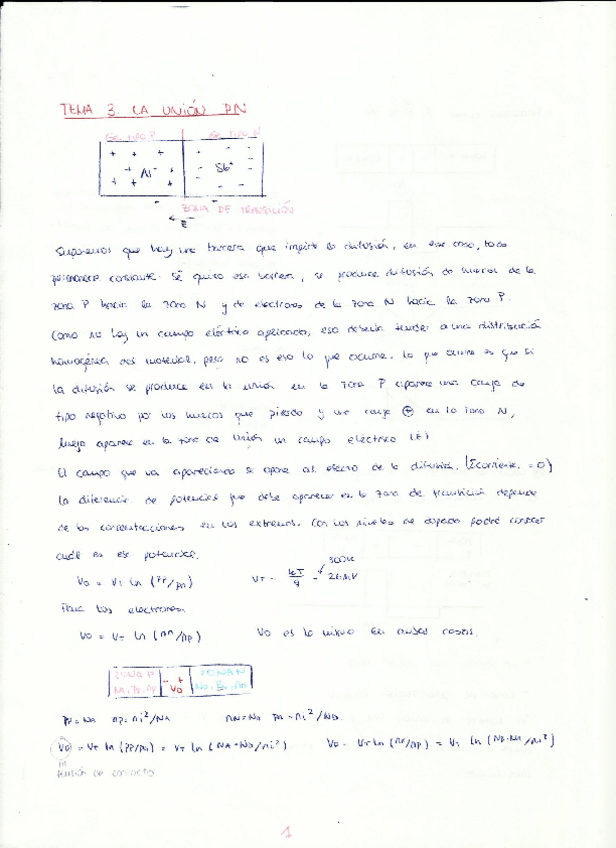 TEMA 3. LA UNIÓN PN
Ge TIPO P Ge TIPO N
Al⁻ Sb⁺
ZONA DE TRANSICIÓN
← E
Suponemos que hay una barrera que impide la difusión, en ese caso, todo
permanece constante. Si quito esa barrera, se produce difusión de huecos de la
zona P hacia la zona N y de electrones de la zona N hacia la zona P.
Como no hay un campo eléctrico aplicado, eso debería tender a una distribución
homogénea del material, pero no es eso lo que ocurre. Lo que ocurre es que si
la difusión se produce en la unión en la zona P aparece una carga de
tipo negativo por los huecos que pierdo y una carga ⊕ en la zona N,
luego aparece en la zona de unión un campo eléctrico (E)
El campo que va apareciendo se opone al efecto de la difusión. (Σcorriente = 0)
La diferencia de potencial que debe aparecer en la zona de transición depende
de las concentraciones en los extremos. Con los niveles de dopado podré conocer
cuál es ese potencial.
300K
V0 = VT ln (Pp/Pn) VT = kT/q = 26mV
Para los electrones:
V0 = VT ln (nn/np) V0 es lo mismo en ambos casos.
ZONA P - + ZONA N
Na, Pp, np V0 ND, Pn, nn
Pp = NA np = ni²/NA nn = ND Pn = ni²/ND
V0 = VT ln (Pp/Pn) = VT ln (NA·ND/ni²) V0 = VT ln (nn/np) = VT ln (ND·NA/ni²)
TENSIÓN DE CONTACTO
1